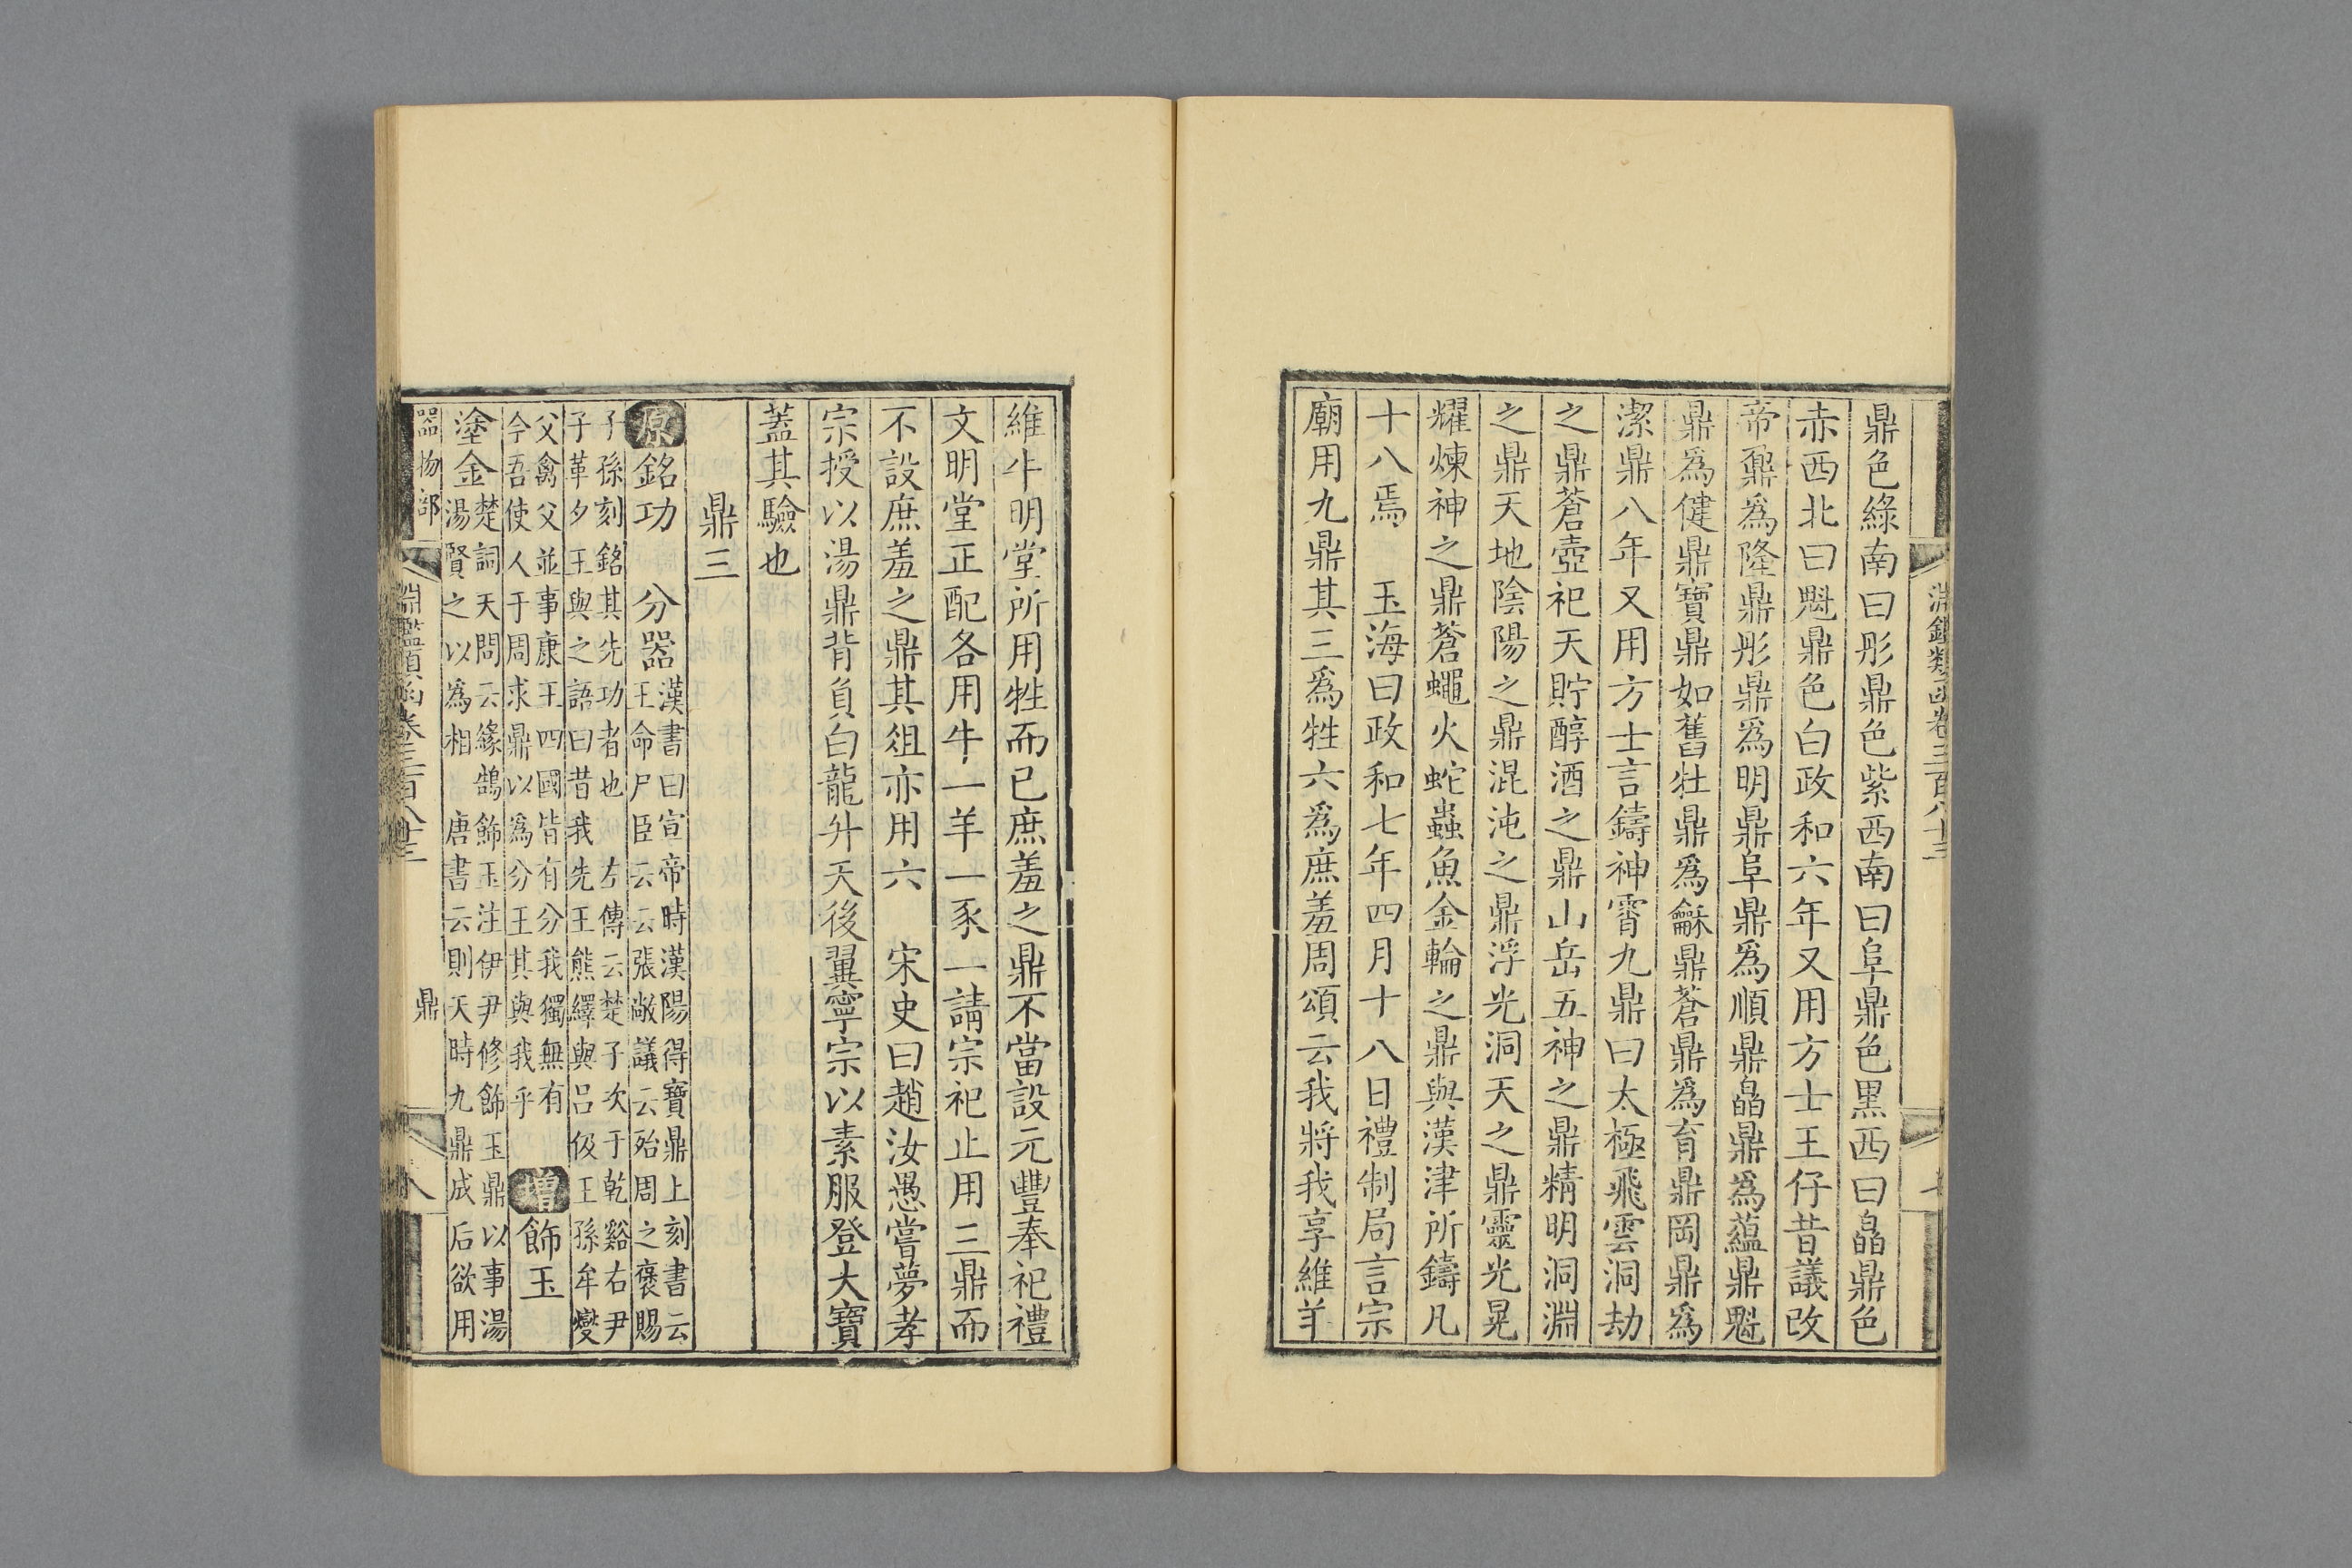 淵鑑類函卷三百八十三
七
鼎色綠南曰彤鼎色紫西南曰阜鼎色黑西曰皛鼎色
赤西北曰魁鼎色白政和六年又用方士王仔昔議改
帝鼐爲隆鼎彤鼎爲明鼎阜鼎爲順鼎皛鼎爲蘊鼎魁
鼎爲健鼎寶鼎如舊牡鼎爲龢鼎蒼鼎爲育鼎岡鼎爲
潔鼎八年又用方士言鑄神霄九鼎曰太極飛雲洞劫
之鼎蒼壺祀天貯醇酒之鼎山岳五神之鼎精明洞淵
之鼎天地陰陽之鼎混沌之鼎浮光洞天之鼎靈光晃
耀煉神之鼎蒼蠅火蛇蟲魚金輪之鼎與漢津所鑄凡
十八焉　玉海曰政和七年四月十八日禮制局言宗
廟用九鼎其三爲牲六爲庶羞周頌云我將我享維羊
維牛明堂所用牲而已庶羞之鼎不當設元豐奉祀禮
文明堂正配各用牛一羊一豕一請宗祀止用三鼎而
不設庶羞之鼎其俎亦用六　宋史曰趙汝愚嘗夢孝
宗授以湯鼎背負白龍升天後翼寧宗以素服登大寶
蓋其驗也
鼎三
原銘功　分器漢書曰宣帝時漢陽得寶鼎上刻書云
王命尸臣云云張敞議云殆周之褒賜
子孫刻銘其先功者也　左傳云楚子次于乾谿右尹
子革夕王與之語曰昔我先王熊繹與呂伋王孫牟燮
父禽父並事康王四國皆有分我獨無有
今吾使人于周求鼎以爲分王其與我乎
增飾玉
塗金楚詞天問云緣鵠飾玉注伊尹修飾玉鼎以事湯
湯賢之以爲相　唐書云則天時九鼎成后欲用
器物部
淵鑑類函卷三百八十三
鼎
八